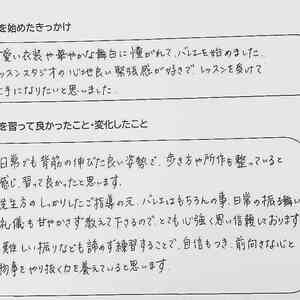 を始めたきっかけ
愛い衣装や華やかな舞台に憧がれて、バレエを始めました。
ッスンスタジオの心地良い緊張感が好きで、レッスンを受けて
手になりたいと思いました。
を習って良かったこと・変化したこと
日常でも背筋の伸びた良い姿勢で、歩き方や所作も整っていると
感じ、習って良かったと思います。
先生方のしっかりしたご指導の元、バレエはもちろんの事、日常の振る舞い
礼儀も甘やかさず教えて下さるので、とても心強く思い信頼しております
難しい振りなども諦めず練習することで、自信もつき、前向きな心と
物事をやり抜く力を養えていると思います。